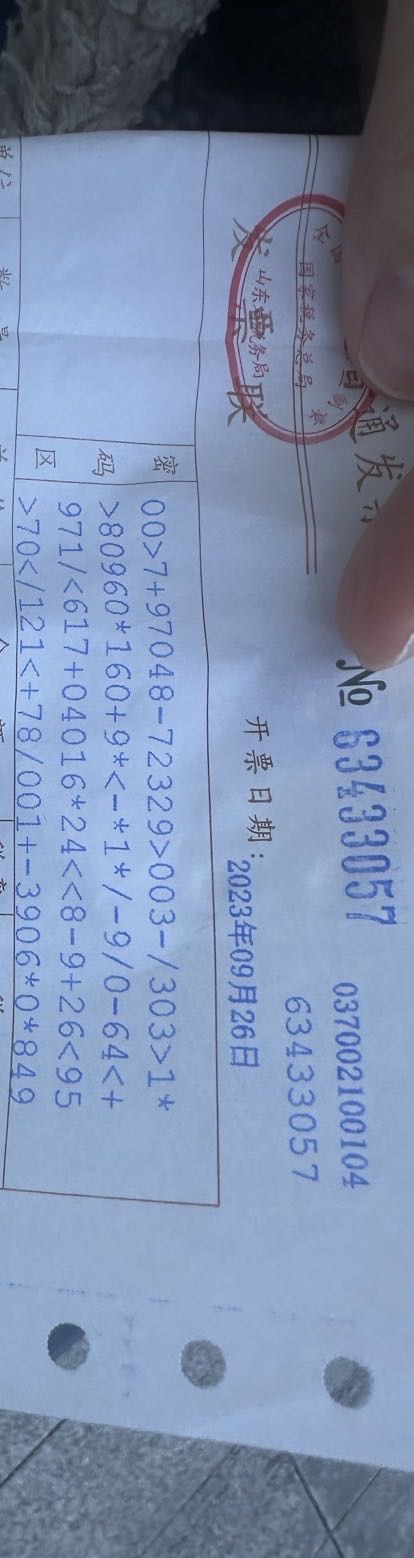 通发
国家税务总局
山东
税务局
发票联
№ 63433057
037002100104
63433057
开票日期：2023年09月26日
密码区
00>7+97048-72329>003-/303>1*
>80960*160+9*<-*1*/-9/0-64<+
971/<617+04016*24<<8-9+26<95
>70</121<+78/001+-3906*0*849
单位
数量